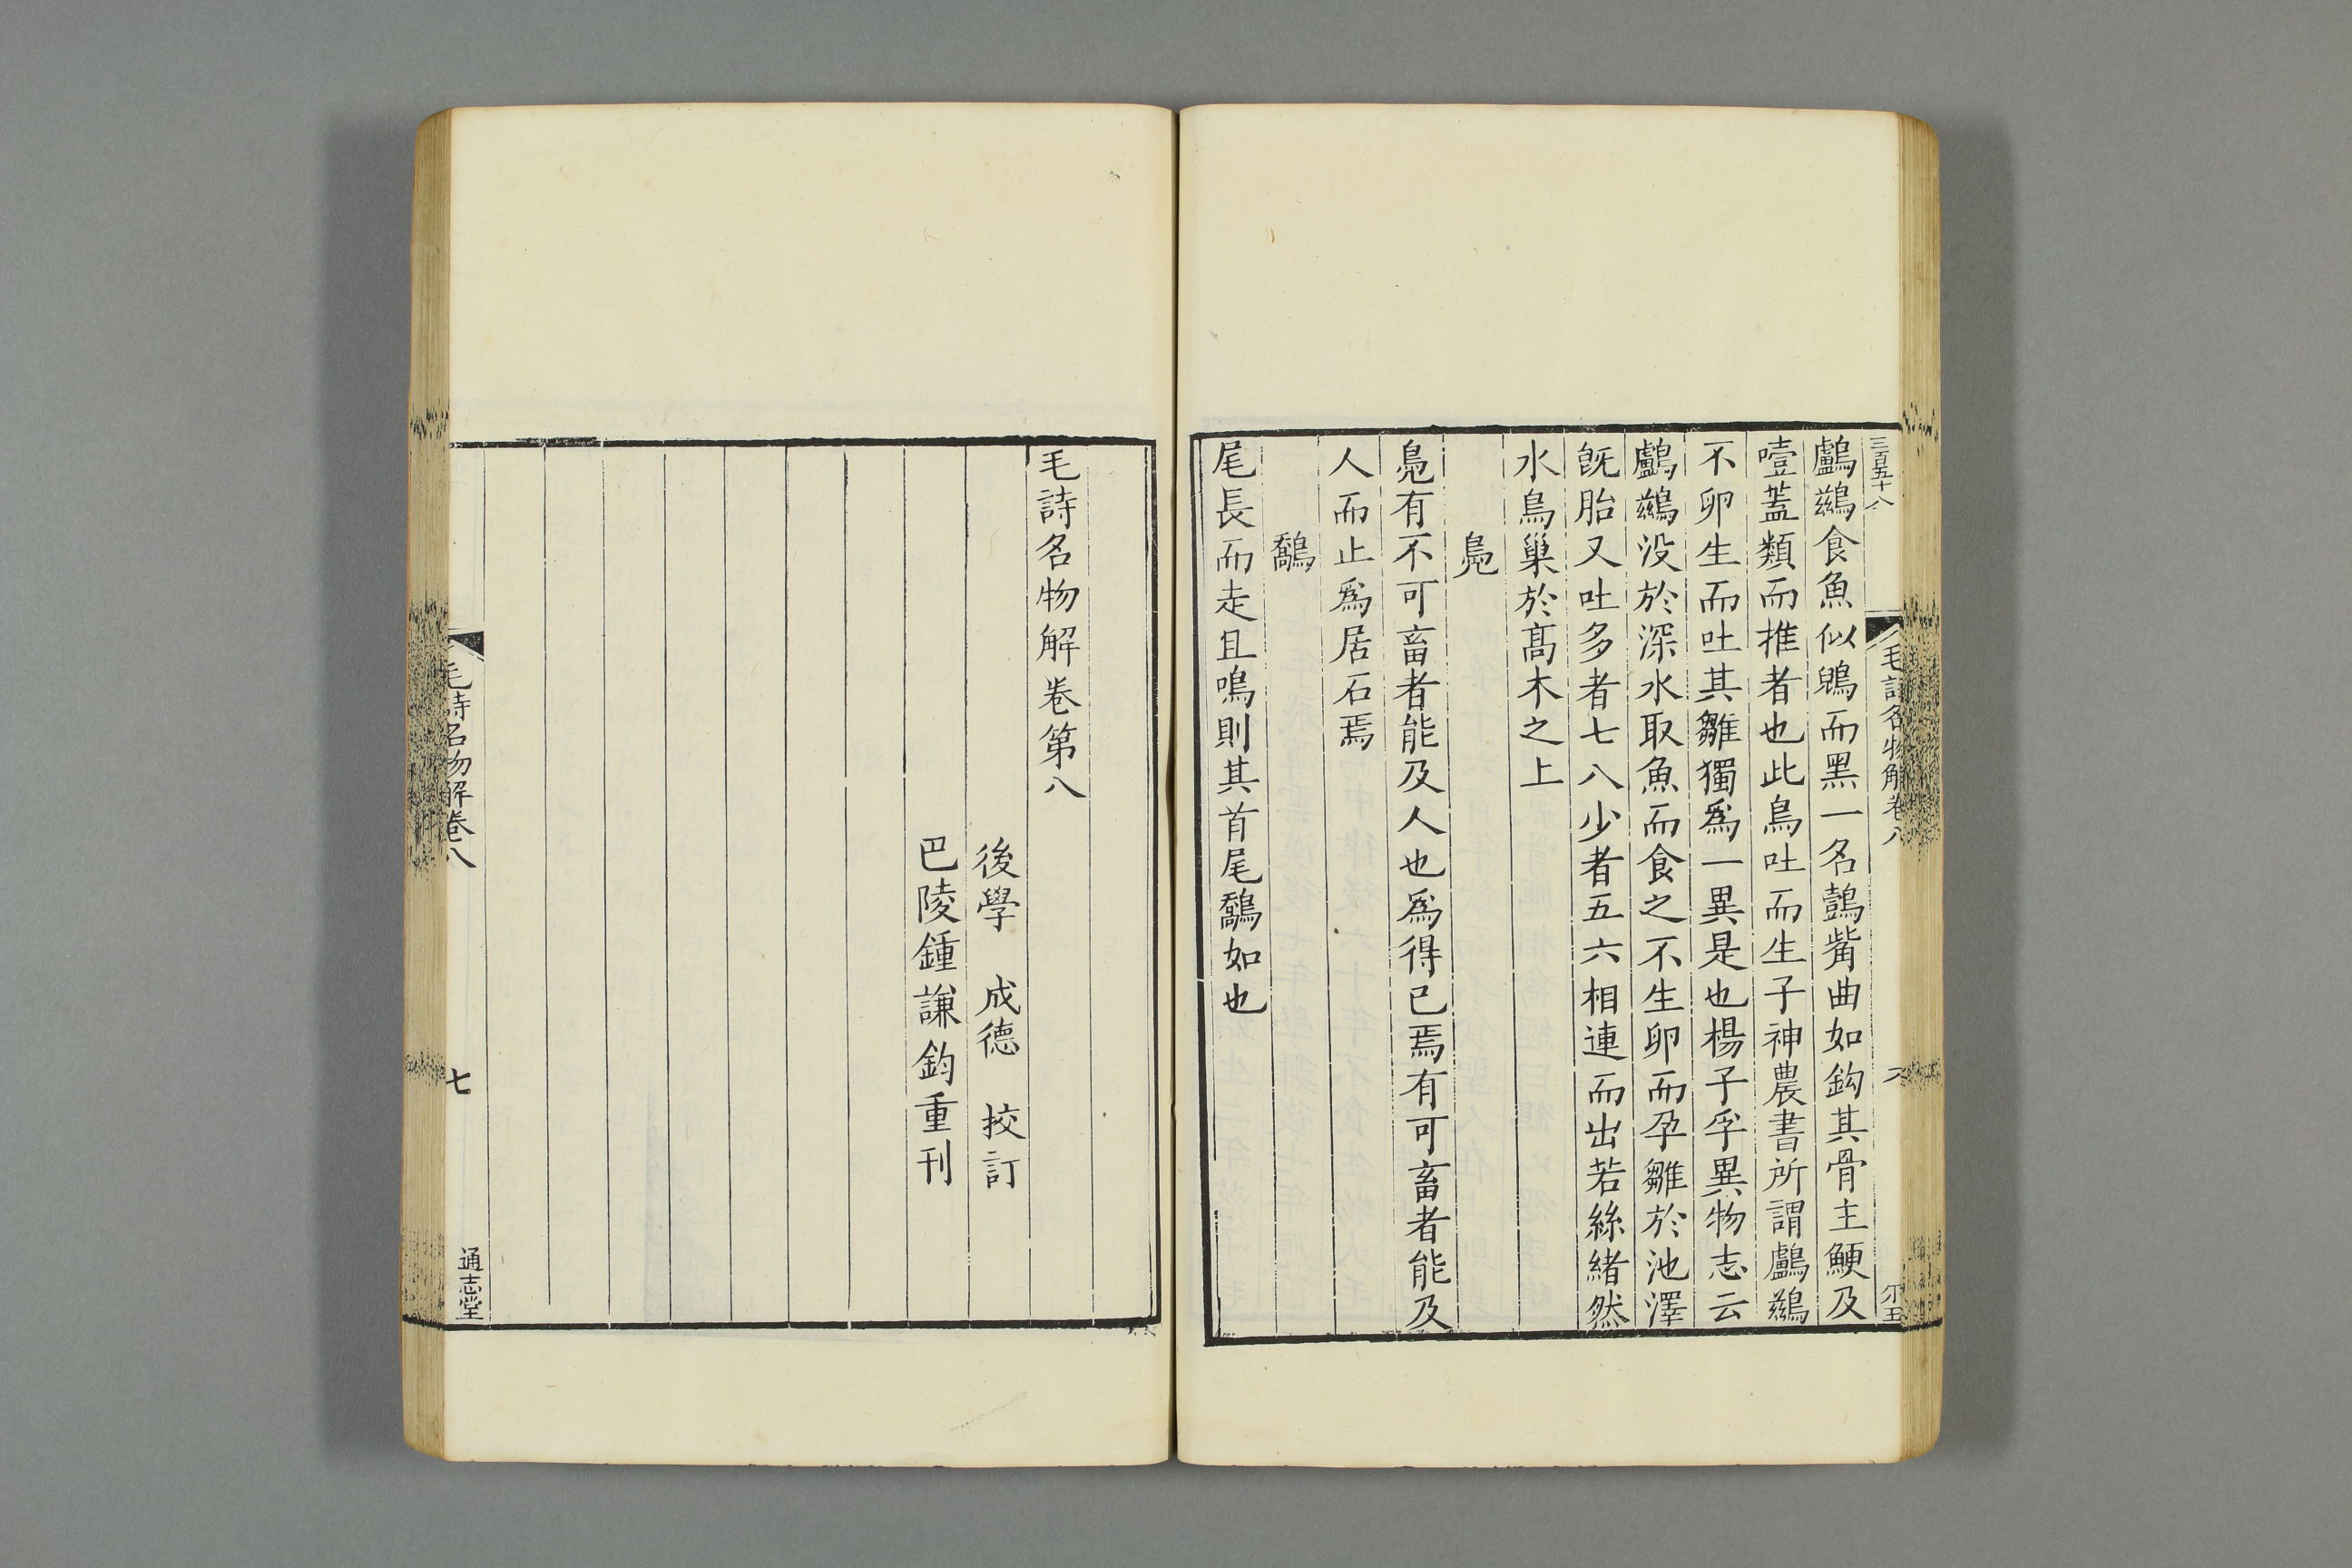 三百五十八
毛詩名物解卷八
八
鸕鷀食魚似鴄而黑一名鷧觜曲如鈎其骨主鯁及
噎蓋類而推者也此鳥吐而生子神農書所謂鸕鷀
不卵生而吐其雛獨爲一異是也楊子孚異物志云
鸕鷀没於深水取魚而食之不生卵而孕雛於池澤
旣胎又吐多者七八少者五六相連而出若絲緒然
水鳥巢於髙木之上
鳧
鳧有不可畜者能及人也爲得已焉有可畜者能及
人而止爲居石焉
鷮
尾長而走且鳴則其首尾鷮如也
毛詩名物解卷第八
後學 成德 挍訂
巴陵鍾謙鈞重刊
毛詩名物解卷八
七
通志堂